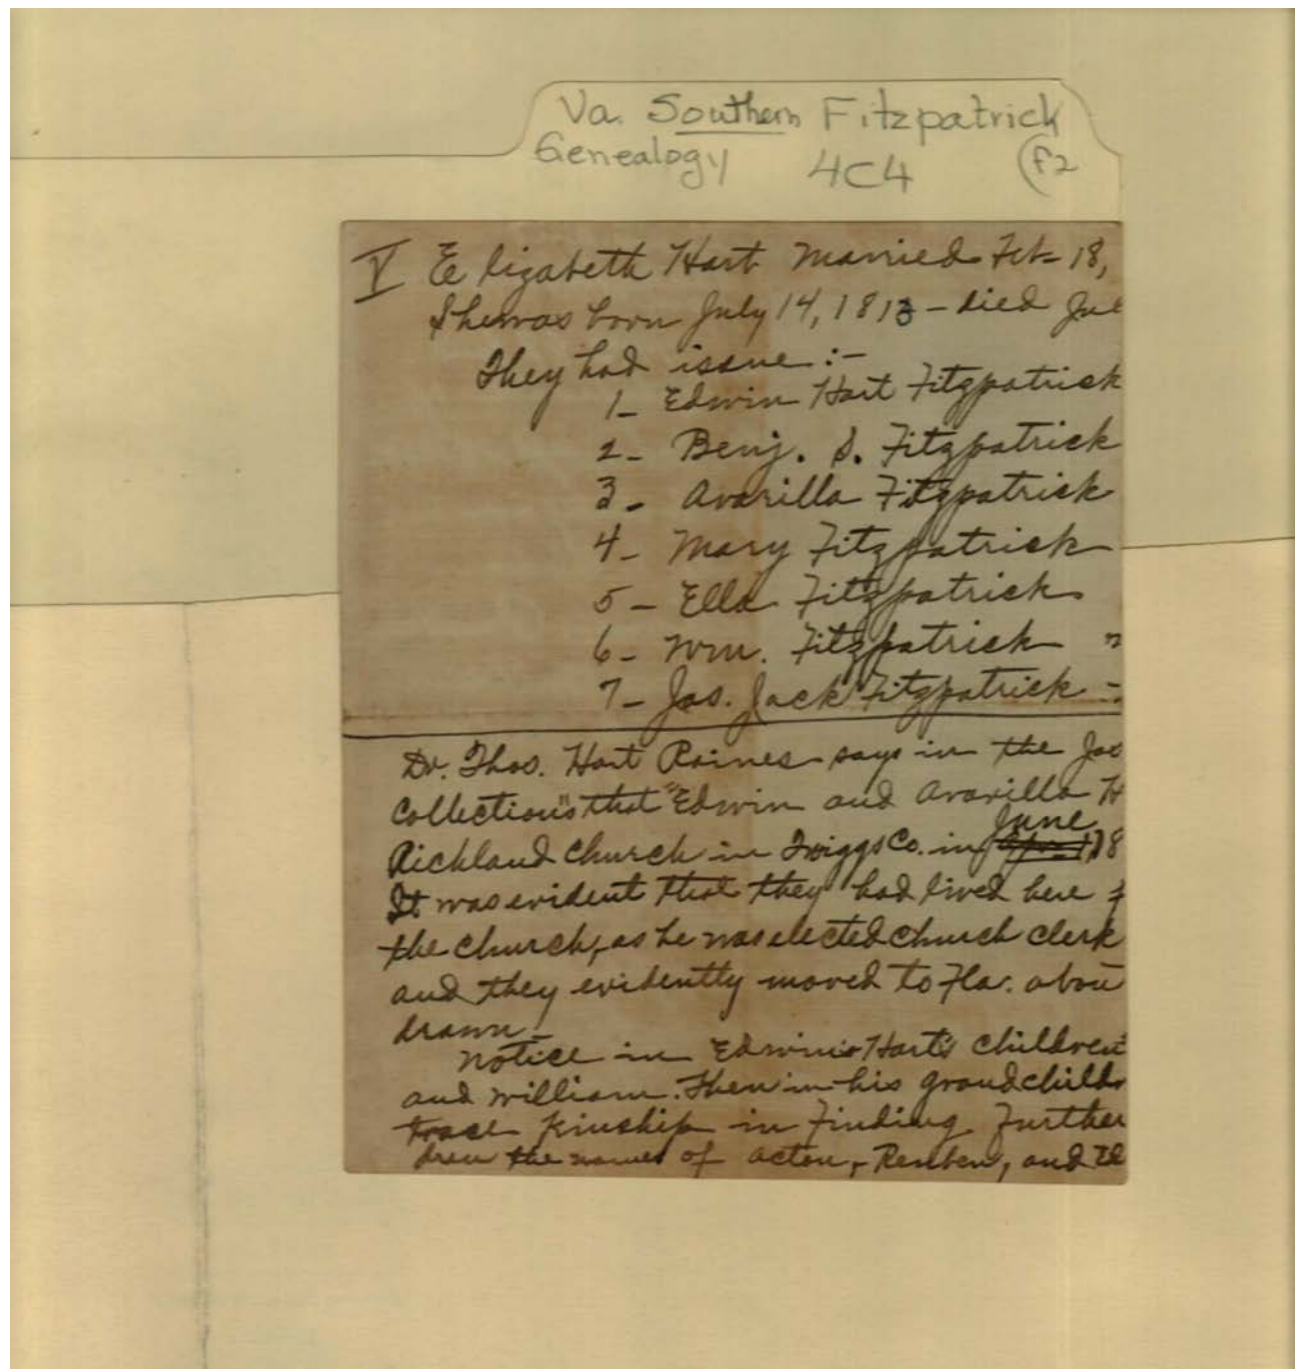 Va. Southern Fitzpatrick
Genealogy 4C4 (F2
V Elizabeth Hart married Feb 18,
She was born July 14, 1813 – died Jul
They had issue :-
1- Edwin Hart Fitzpatrick
2- Benj. S. Fitzpatrick
3- Avarilla Fitzpatrick
4- Mary Fitzpatrick
5- Ella Fitzpatrick
6- Wm. Fitzpatrick "
7- Jas. Jack Fitzpatrick -
Dr. Thos. Hart Raines says in the Jas
Collection" that "Edwin and Avarilla H
June
Richland Church in Twiggs Co. in 18
It was evident that they had lived here
the church, as he was elected church clerk
and they evidently moved to Fla. abou
drawn –
Notice in Edwin Hart's children
and William. Then in his grandchild
trace kinship in finding further
dren the names of Acton, Reuben, and